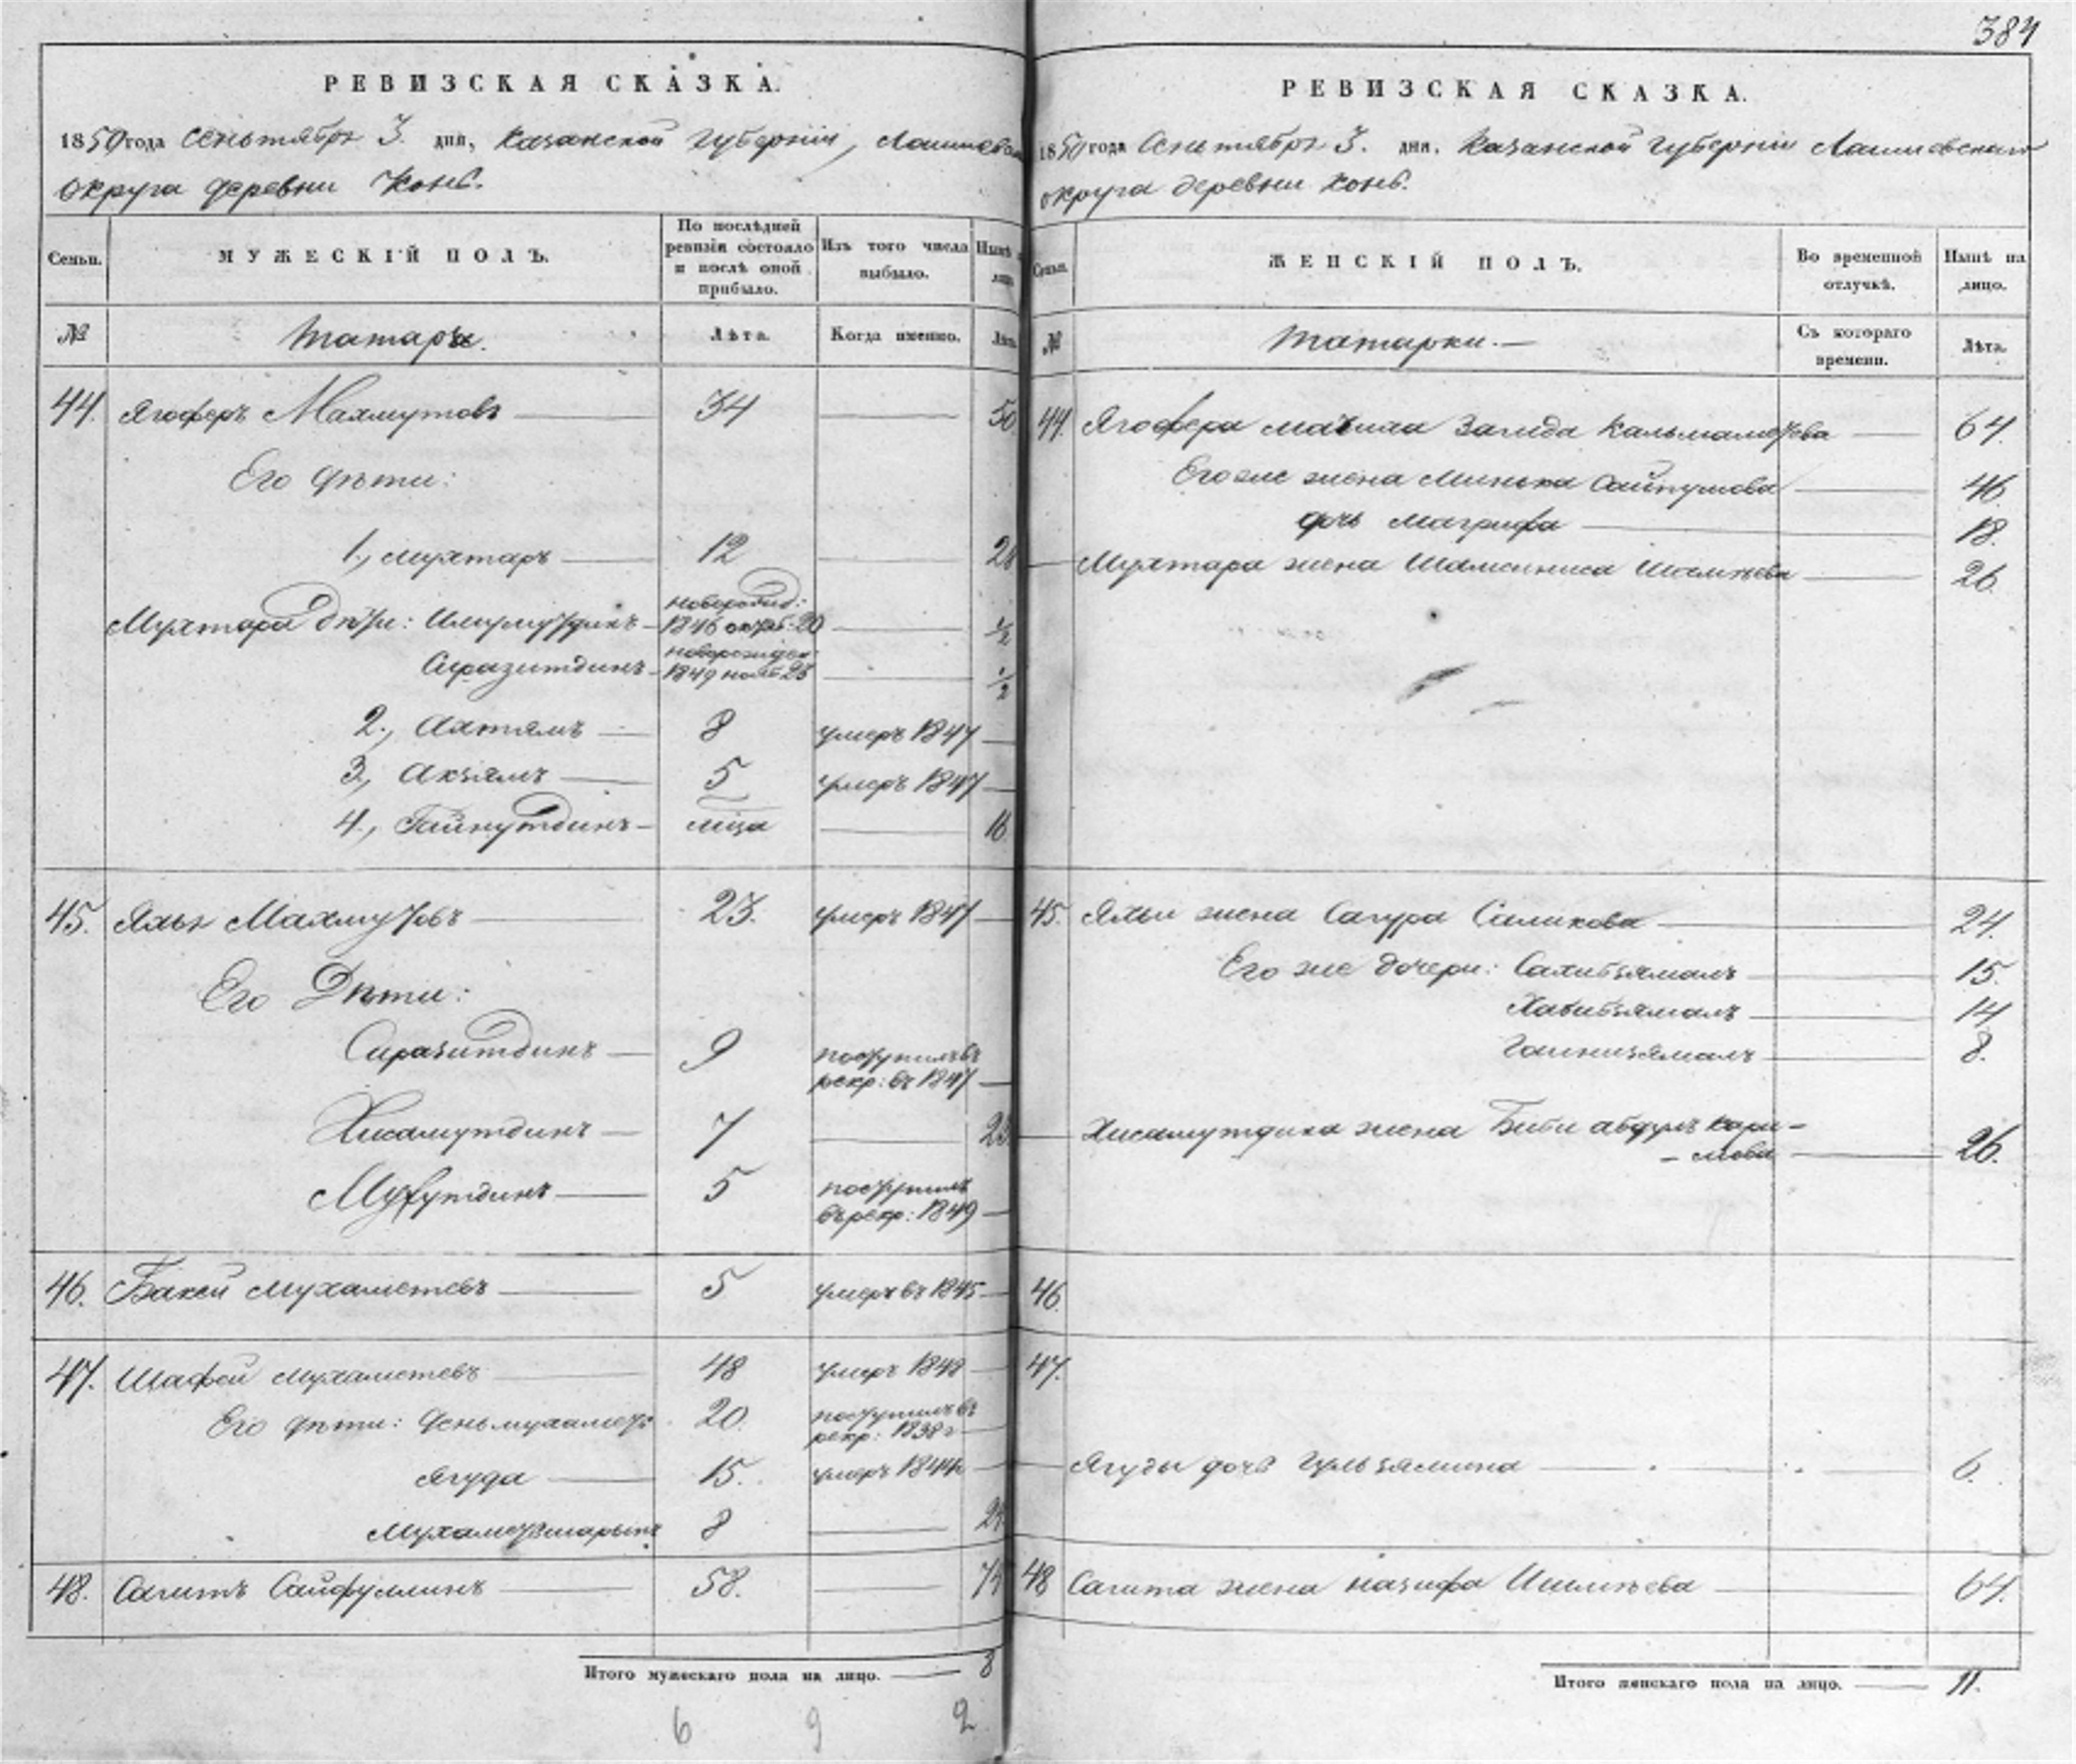 384
РЕВИЗСКАЯ СКАЗКА.
1850 года Сентября 3. дня, Казанской губернии, Лаишевска
округа деревни Конь.
Семьи.
МУЖЕСКІЙ ПОЛЪ.
По послѣдней ревизіи состояло и послѣ оной прибыло.
Изъ того числа выбыло.
Нынѣ
лицо
№
Татаръ.
Лѣта.
Когда именно.
Лѣта.
44. Ягоферъ Махмутовъ 34 50
Его дѣти:
1., Мухтаръ 12 28
Мухтара дѣти: новорожд: 1846 октяб: 20 1/2
Сиразитдинъ новорожден 1849 нояб 23 1/2
2., Ахтямъ 8 умеръ 1847
3., Акзямъ 5 умеръ 1847
4., Гайнутдинъ м-ца 16
45. Яхья Махмутовъ 23. умеръ 1847
Его Дѣти:
Сиразитдинъ 9 поступилъ въ рекр: въ 1847
Хисамутдинъ 7 23
5 поступилъ въ рекр: 1849
46. Бакей Мухаметевъ 5 умеръ въ 1845
47. Шафей Мухаметевъ 48 умеръ 1848
Его дѣти: 20. поступилъ въ рекр: 1838 г
Ягуда 15. умеръ 1844
Мухаметшарыпъ 8 24
48. Сагитъ Сайфуллинъ 58. 74
Итого мужескаго пола на лицо. 8
6 9 2
РЕВИЗСКАЯ СКАЗКА.
1850 года Сентября 3. дня. Казанской губернии Лаишевскаго
округа деревни Конь.
Семьи.
ЖЕНСКІЙ ПОЛЪ.
Во временной отлучкѣ.
Нынѣ на лицо.
№
Татарки.
Съ котораго времени.
Лѣта.
44. Ягофера Загида Кальмаметева 64.
Его же жена 46
дочь Магрифа 18.
Мухтара жена 26
45. Яхьи жена Сагура Саликова 24.
Его же дочери: Сахибзямалъ 15.
Хабибзямалъ 14
8.
Хисамутдина жена Биби абдулъ кари-
-мова 26.
46.
47.
Ягуды дочь Гульзямина 6.
48 Сагита жена назифа 64.
Итого женскаго пола на лицо. 11.